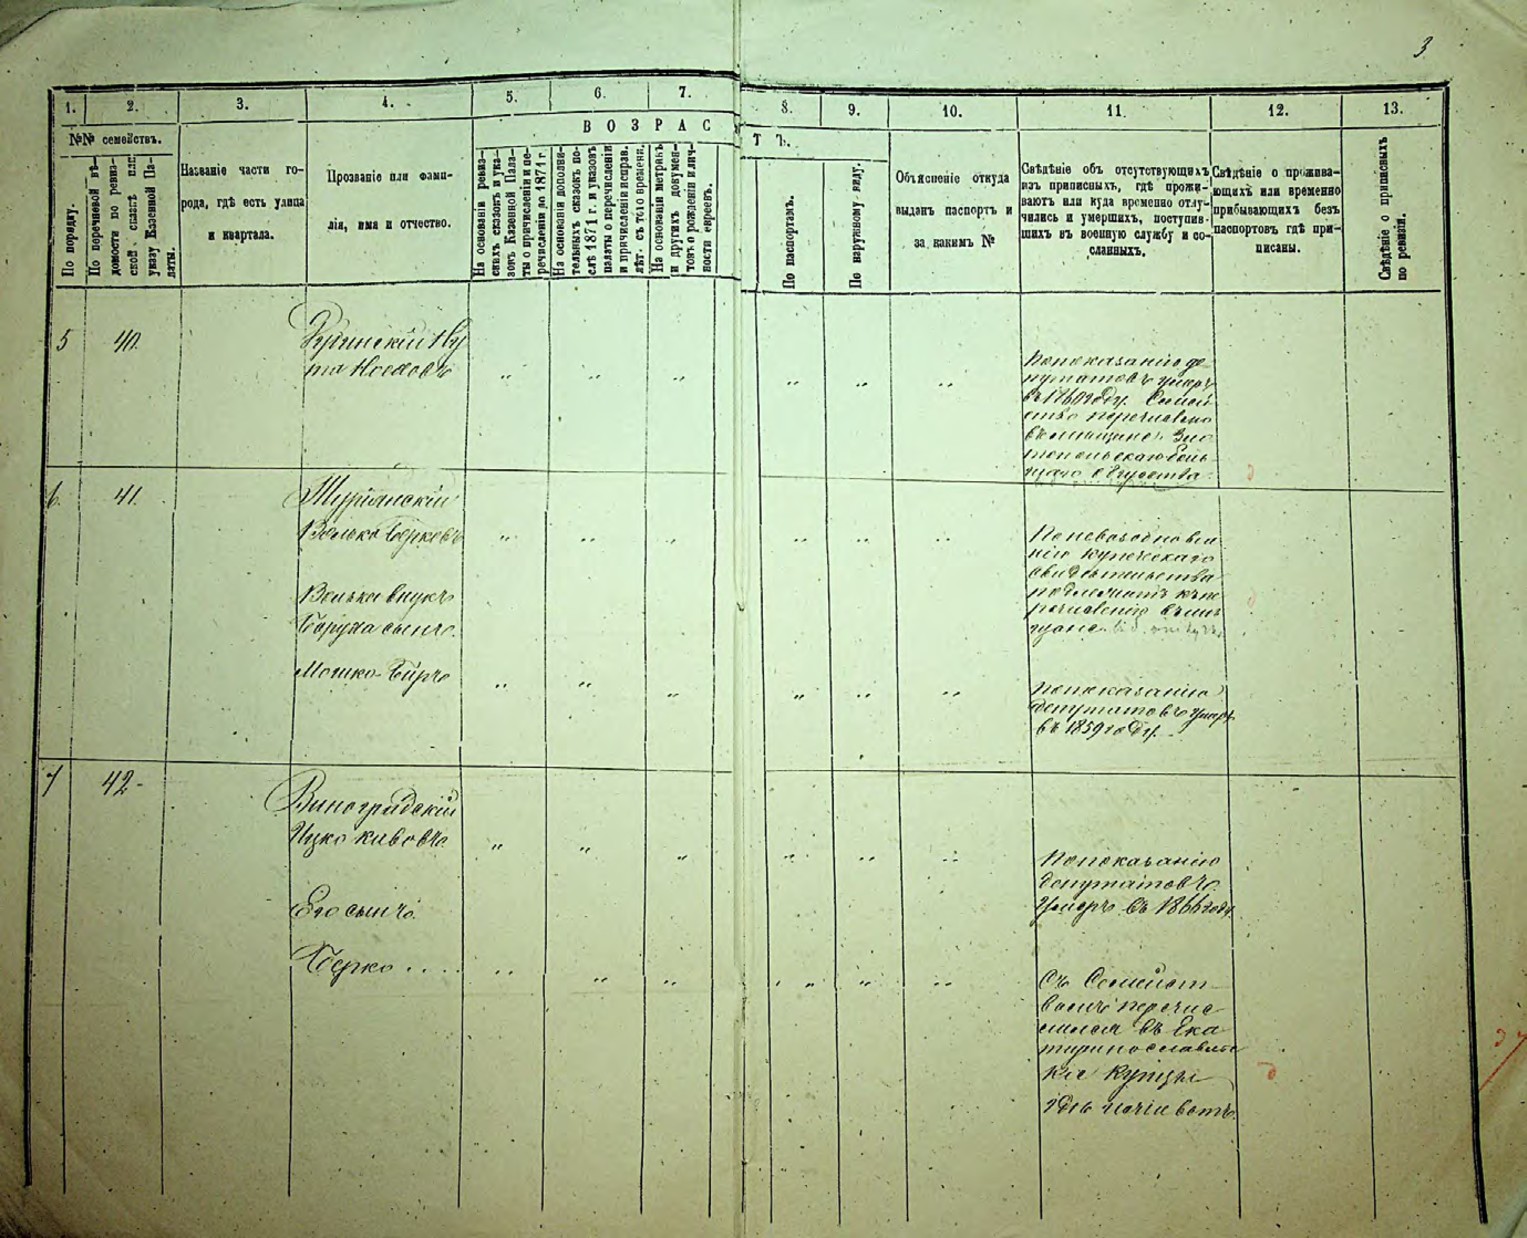 3
1. 2. 3. 4. 5. 6. 7. 8. 9. 10. 11. 12. 13.
№№ семействъ.
По порядку.
По перечневой вѣ-
домости по ревиз-
ской сказкѣ или
указу Казенной Па-
латы.
Названіе части го-
рода, гдѣ есть улица
и квартала.
Прозваніе или фами-
лія, имя и отчество.
ВОЗРАСТЪ.
На основаніи ревиз-
скихъ сказокъ и ука-
зовъ Казенной Пала-
ты о причисленіи и пе-
речисленіи до 1871 г.
На основаніи дополни-
тельныхъ сказокъ по-
слѣ 1871 г. и указовъ
палаты о перечисленіи
и причисленіи исправ.
лѣт. съ того времени.
На основаніи метрикъ
и другихъ докумен-
товъ о рожденіи и лич-
ности евреевъ.
По паспортамъ.
По наружному виду.
Объясненіе откуда
выданъ паспортъ и
за какимъ №
Свѣдѣніе объ отсутствующихъ
изъ приписныхъ, гдѣ прожи-
ваютъ или куда временно отлу-
чились и умершихъ, поступив-
шихъ въ военную службу и со-
сланныхъ.
Свѣдѣніе о прожива-
ющихъ или временно
прибывающихъ безъ
паспортовъ гдѣ при-
писаны.
Свѣдѣніе о приписныхъ
по ревизіи.
5 40.
По показанію де-
путатовъ умеръ
въ 1860 году. Семей
ство перечислено
въ мещане
6. 41.
Турianскій
Волько Берковъ
По невозобновле
нію купеческаго
свидѣтельства
подлежитъ къ пе
речисленію въ мѣ
щане
Волька внукъ
Боруха сынъ.
Мошко-Беръ
По показанію
депутатовъ умеръ
въ 1859 году.
7 42-
Виноградскій
Ицко Кивовъ
По показанію
депутатовъ
умеръ въ 1866 году
Его сынъ
Берко....
Съ Семейст
вомъ перечис
лился въ Ека
теринославскі
е купцы
гдѣ и живетъ.